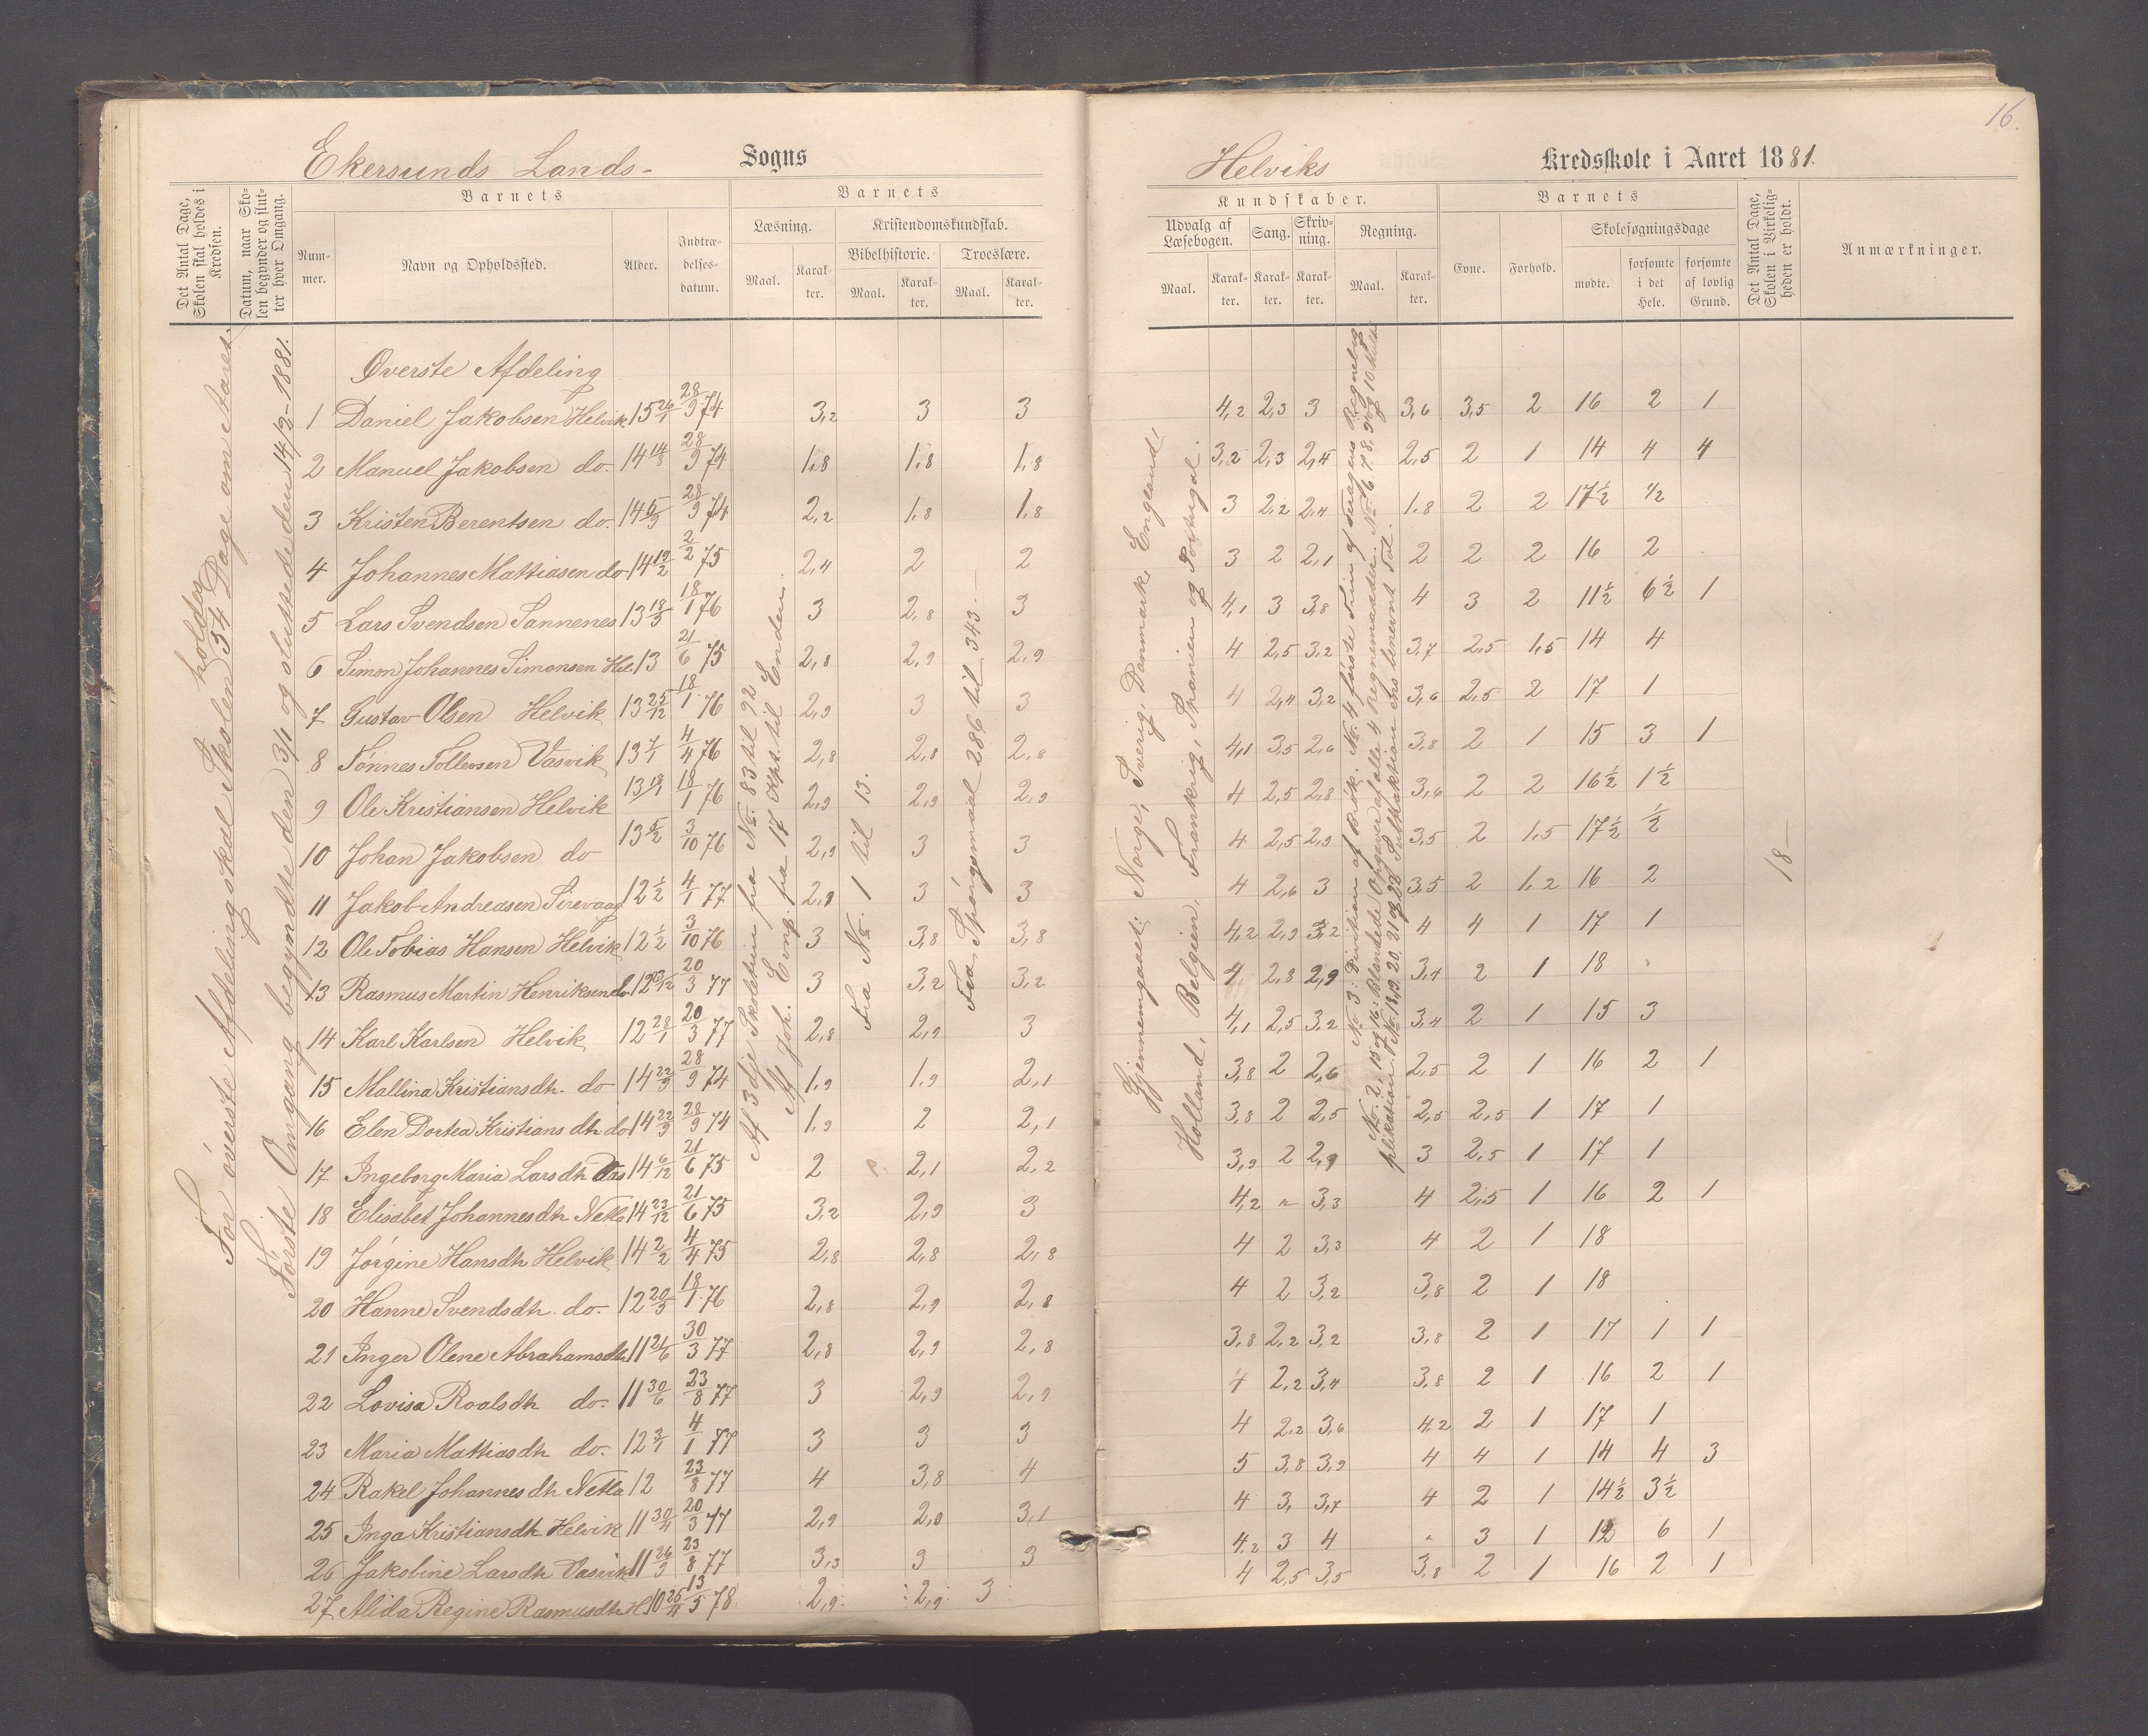 16.
Ekersunds Lands- Sogns
Helviks Kredsskole i Aaret 1881.
Det Antal Dage, Skolen skal holdes i Kredsen.
Datum, naar Skolen begynder og slutter hver Omgang.
Barnets
Nummer.
Navn og Opholdssted.
Alder.
Indtrædelsesdatum.
Barnets
Læsning.
Maal.
Karakter.
Kristendomskundskab.
Bibelhistorie.
Maal.
Karakter.
Troeslære.
Maal.
Karakter.
Kundskaber.
Udvalg af Læsebogen.
Maal.
Karakter.
Sang.
Karakter.
Skrivning.
Karakter.
Regning.
Maal.
Karakter.
Barnets
Evne.
Forhold.
Skolesøgningsdage
mødte.
forsømte i det Hele.
forsømte af lovlig Grund.
Det Antal Dage, Skolen i Virkeligheden er holdt.
Anmærkninger.
For øverste Afdeling skal Skolen holdes 54 Dage om Aaret.
Første Omgang begyndte den 3/1 og sluttede den 14/2-1881.
Af 3die Skoletrin fra No. 83 til 92
Af Joh. Evng. fra 17 Kpt. til Enden.
Fra No. 1 til 13.
Fra Spørgsmaal 286 til 343
Gjennemgaaet: Norge, Sverig, Danmark, England,
Holland, Belgien, Frankrig, Spanien og Portugal.
18
Øverste Afdeling
1 Daniel Jakobsen Helvik 15 26/1 28/9 74 3,2 3 3 4,2 2,3 3 3,6 3,5 2 16 2 1
2 Manuel Jakobsen do. 14 14/8 28/9 74 1,8 1,8 1,8 3,2 2,3 2,4 2,5 2 1 14 4 4
3 Kristen Berentsen do. 14 5/9 28/9 74 2,2 1,8 1,8 3 2,2 2,4 1,8 2 2 17½ ½
4 Johannes Mattiasen do 14 19/2 2/2 75 2,4 2 2 3 2 2,1 2 2 2 16 2
5 Lars Svendsen Sannenes 13 18/5 18/1 76 3 2,8 3 4,1 3 3,8 4 3 2 11½ 6½ 1
6 Simon Johannes Simonsen Hel. 13 21/6 75 2,8 2,9 2,9 4 2,5 3,2 3,7 2,5 1,5 14 4
7 Gustav Olsen Helvik 13 25/12 18/1 76 2,9 3 3 4 2,4 3,2 3,6 2,5 2 17 1
8 Tønnes Tollevsen Vasvik 13 7/1 4/4 76 2,8 2,8 2,8 4,1 3,5 2,6 3,8 2 1 15 3 1
9 Ole Kristiansen Helvik 13 18/1 18/1 76 2,9 2,9 2,9 4 2,5 2,8 3,6 2 2 16½ 1½
10 Johan Jakobsen do 13 5/2 3/10 76 2,9 3 3 4 2,5 2,9 3,5 2 1,5 17½ ½
11 Jakob Andreasen Sirevaag 12 ½ 4/1 77 2,9 3 3 4 2,6 3 3,5 2 1,2 16 2
12 Ole Tobias Hansen Helvik 12 ½ 3/10 76 3 3,8 3,8 4,2 2,9 3,2 4 4 1 17 1
13 Rasmus Martin Henriksen do 12 20/3 77 3 3,2 3,2 4 2,8 2,9 3,4 2 1 18
14 Karl Karlsen Helvik 12 28/1 20/3 77 2,8 2,9 3 4,1 2,5 3,2 3,4 2 1 15 3
15 Mallina Kristiansdh. do 14 22/9 28/9 74 1,9 1,9 2,1 3,8 2 2,6 2,5 2 1 16 2 1
16 Elen Dortea Kristiansdh do 14 22/9 28/9 74 1,9 2 2,1 3,8 2 2,5 2,5 2,5 1 17 1
17 Ingeborg Maria Larsdh Vas 14 6/12 21/6 75 2 2,1 2,2 3,9 2 2,9 3 2,5 1 17 1
18 Elisabet Johannesdh Netla 14 23/12 21/6 75 3,2 2,9 3 4,2 " 3,3 4 2,5 1 16 2 1
19 Jørgine Hansdh Helvik 14 2/2 4/4 75 2,8 2,8 2,8 4 2 3,3 4 2 1 18
20 Hanne Svendsdh. do. 12 20/5 18/1 76 2,8 2,9 2,8 4 2 3,2 3,8 2 1 18
21 Inger Olene Abrahamsdh 11 21/6 30/3 77 2,8 2,9 2,8 3,8 2,2 3,2 3,8 2 1 17 1 1
22 Lovisa Roalsdh do. 11 30/6 23/8 77 3 2,9 2,9 4 2,2 3,4 3,8 2 1 16 2 1
23 Maria Mattiasdh do. 12 3/1 4/1 77 3 3 3 4 2,2 3,6 4,2 2 1 17 1
24 Rakel Johannesdh Netla 12 23/8 77 4 3,8 4 5 3,8 3,9 4 4 1 14 4 3
25 Inga Kristiansdh Helvik 11 30/4 20/3 77 2,9 2,8 3,1 4 3, 3,7 4 2 1 14½ 3½
26 Jakobine Larsdh Vasvik 11 26/9 23/8 77 3,3 3 3 4,2 3 4 " 3 1 12 6 1
27 Alida Regine Rasmusdh H. 10 25/4 13/5 78 2,9 2,9 3 4 2,5 3,5 3,8 2 1 16 2 1